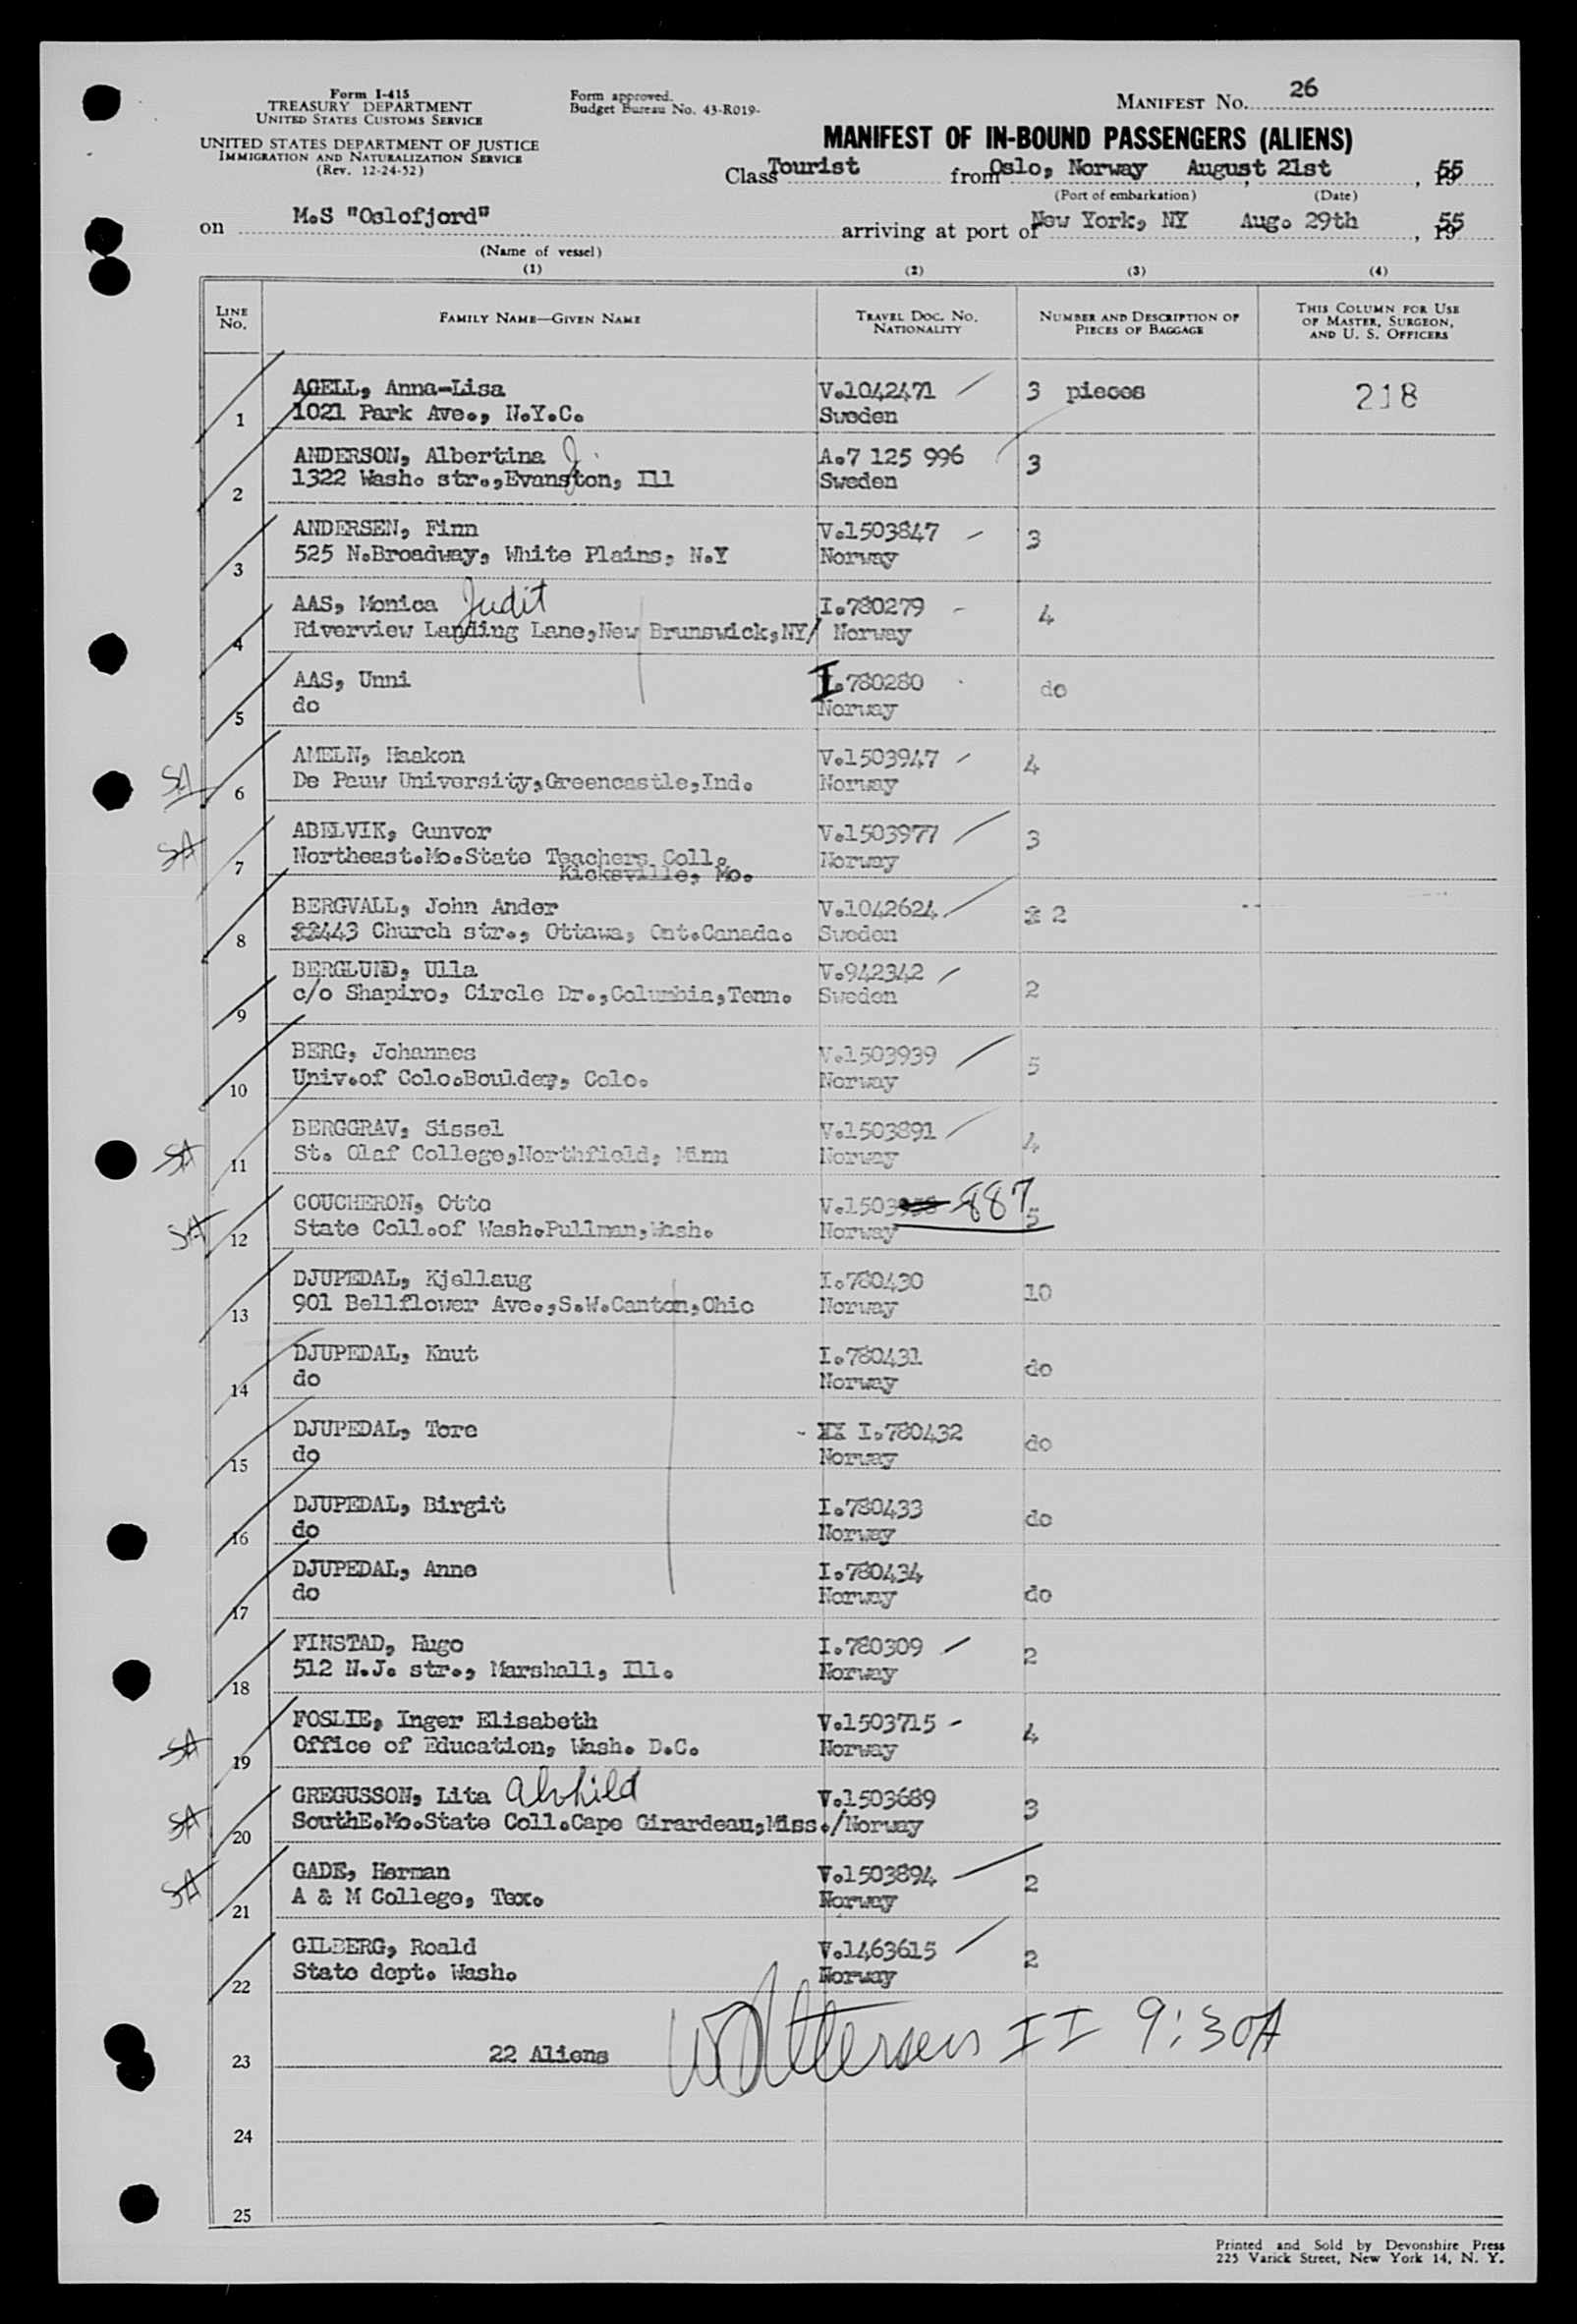 Form I-415
TREASURY DEPARTMENT
UNITED STATES CUSTOMS SERVICE
UNITED STATES DEPARTMENT OF JUSTICE
IMMIGRATION AND NATURALIZATION SERVICE
(Rev. 12-24-52)
Form approved.
Budget Bureau No. 43-R019-
MANIFEST NO. 26
MANIFEST OF IN-BOUND PASSENGERS (ALIENS)
Class Tourist from Oslo, Norway August 21st, 1955
(Port of embarkation) (Date)
on M.S "Oslofjord" arriving at port of New York, NY Aug. 29th, 1955
(Name of vessel)
(1) (2) (3) (4)
LINE NO. FAMILY NAME—GIVEN NAME TRAVEL DOC. NO. NATIONALITY NUMBER AND DESCRIPTION OF PIECES OF BAGGAGE THIS COLUMN FOR USE OF MASTER, SURGEON, AND U. S. OFFICERS
AGELL, Anna-Lisa V.1042471 3 pieces 218
1 1021 Park Ave., N.Y.C. Sweden
ANDERSON, Albertina J. A.7 125 996 3
2 1322 Wash. str.,Evanston, Ill Sweden
ANDERSEN, Finn V.1503847 3
3 525 N.Broadway, White Plains, N.Y Norway
AAS, Monica Judit I.780279 4
4 Riverview Landing Lane,New Brunswick,NY/ Norway
AAS, Unni I.780280 do
5 do Norway
SA AMELN, Haakon V.1503947 4
6 De Pauw University,Greencastle,Ind. Norway
SA ABELVIK, Gunvor V.1503977 3
7 Northeast.Mo.State Teachers Coll. Norway
Kicksville, Mo.
BERGVALL, John Ander V.1042624 2
8 443 Church str., Ottawa, Ont.Canada. Sweden
BERGLUND, Ulla V.942342 2
9 c/o Shapiro, Circle Dr.,Columbia,Tenn. Sweden
BERG, Johannes V.1503939 5
10 Univ.of Colo.Boulder, Colo. Norway
SA BERGGRAV, Sissel V.1503891 4
11 St. Olaf College,Northfield, Minn Norway
SA COUCHERON, Otto V.1503 887 5
12 State Coll.of Wash.Pullman,Wash. Norway
DJUPEDAL, Kjellaug I.780430 10
13 901 Bellflower Ave.,S.W.Canton,Ohio Norway
DJUPEDAL, Knut I.780431 do
14 do Norway
DJUPEDAL, Tore I.780432 do
15 do Norway
DJUPEDAL, Birgit I.780433 do
16 do Norway
DJUPEDAL, Anne I.780434 do
17 do Norway
FINSTAD, Hugo I.780309 2
18 512 N.J. str., Marshall, Ill. Norway
SA FOSLIE, Inger Elisabeth V.1503715 4
19 Office of Education, Wash. D.C. Norway
SA GREGUSSON, Lita Alvhild V.1503689 3
20 SouthE.Mo.State Coll.Cape Girardeau,Miss./Norway
SA GADE, Herman V.1503894 2
21 A & M College, Tex. Norway
GILBERG, Roald V.1463615 2
22 State dept. Wash. Norway
23 22 Aliens II 9:30A
24
25
Printed and Sold by Devonshire Press
225 Varick Street, New York 14, N. Y.